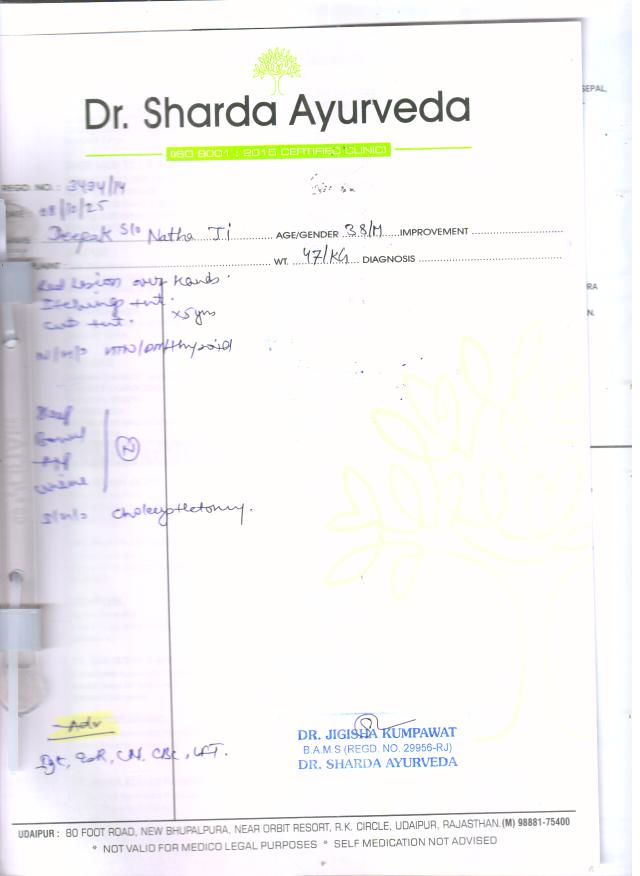 Dr. Sharda Ayurveda
(ISO 9001 : 2015 CERTIFIED CLINIC)
REGD. NO. : 3494/14
08/10/25
Deepak S/o Natha Ji AGE/GENDER 38/M IMPROVEMENT
WT. 47/KG DIAGNOSIS
Red Lesion over hands.
Itching +nt.
Cut +nt. x5yrs
N/H/O HTN/DM/thyroid
Sleep
Bowel
App
Urine
N
S/H/O Cholecystectomy.
Adv
IgE, ESR, CBC, LFT.
DR. JIGISHA KUMPAWAT
B.A.M.S (REGD. NO. 29956-RJ)
DR. SHARDA AYURVEDA
UDAIPUR : 80 FOOT ROAD, NEW BHUPALPURA, NEAR ORBIT RESORT, R.K. CIRCLE, UDAIPUR, RAJASTHAN.(M) 98881-75400
* NOT VALID FOR MEDICO LEGAL PURPOSES * SELF MEDICATION NOT ADVISED